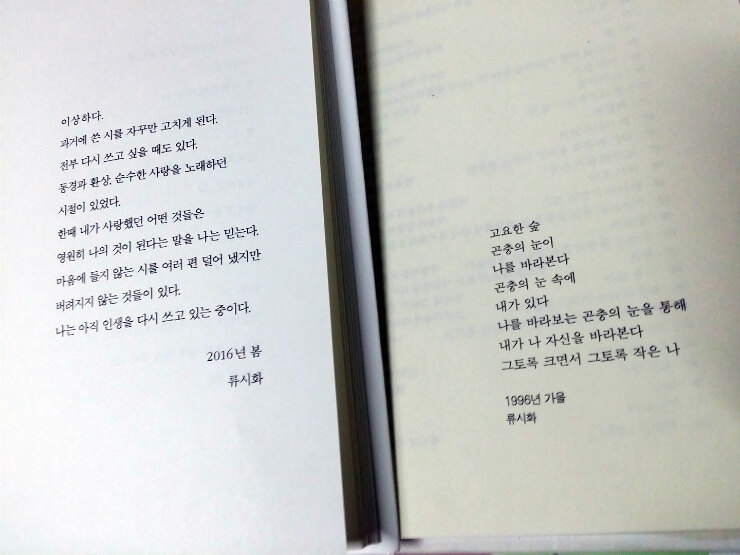 이상하다.
과거에 쓴 시를 자꾸만 고치게 된다.
전부 다시 쓰고 싶을 때도 있다.
동경과 환상, 순수한 사랑을 노래하던
시절이 있었다.
한때 내가 사랑했던 어떤 것들은
영원히 나의 것이 된다는 말을 나는 믿는다.
마음에 들지 않는 시를 여러 편 덜어 냈지만
버려지지 않는 것들이 있다.
나는 아직 인생을 다시 쓰고 있는 중이다.
2016년 봄
류시화
고요한 숲
곤충의 눈이
나를 바라본다
곤충의 눈 속에
내가 있다
나를 바라보는 곤충의 눈을 통해
내가 나 자신을 바라본다
그토록 크면서 그토록 작은 나
1996년 가을
류시화